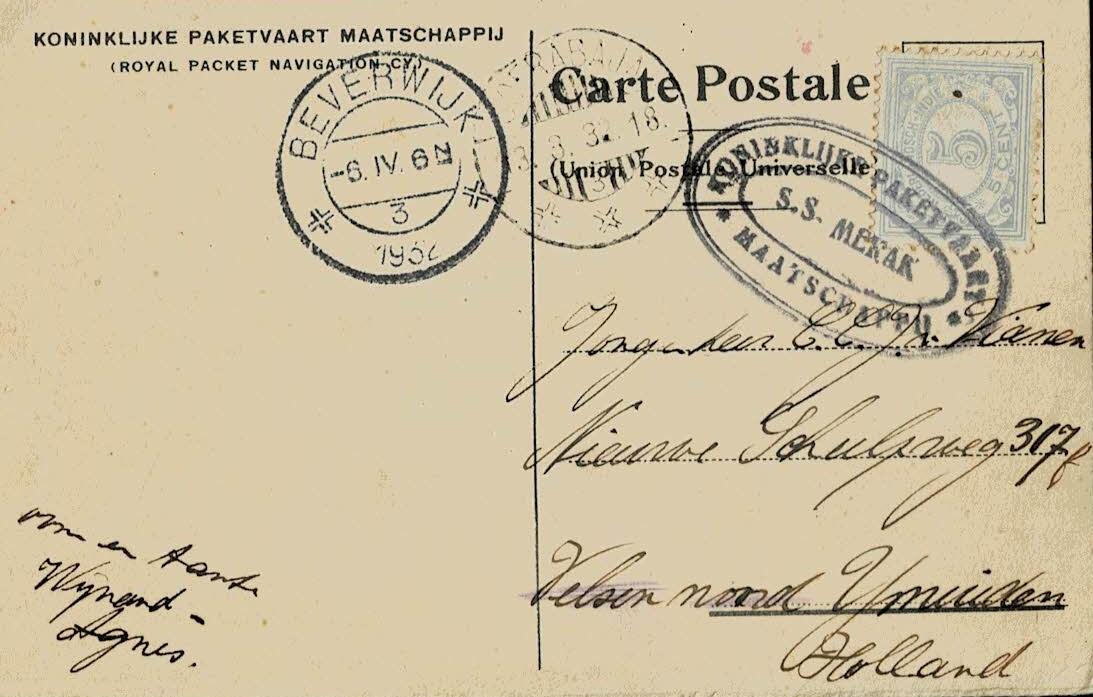 KONINKLIJKE PAKETVAART MAATSCHAPPIJ
(ROYAL PACKET NAVIGATION CY.)
BEVERWIJK
-6.IV.6N
3
1932
SOERABAJA
3.32.18
Carte Postale
(Union Postale Universelle)
5
5 CENT
KONINKLIJKE PAKETVAART
S.S. MERAK
MAATSCHAPPIJ
Jongeheer C.C.J. v. Vianen
Nieuwe Schulpweg 317f
Velsen noord Ymuiden
Holland
oom en tante
Wijnand -
Agnes.